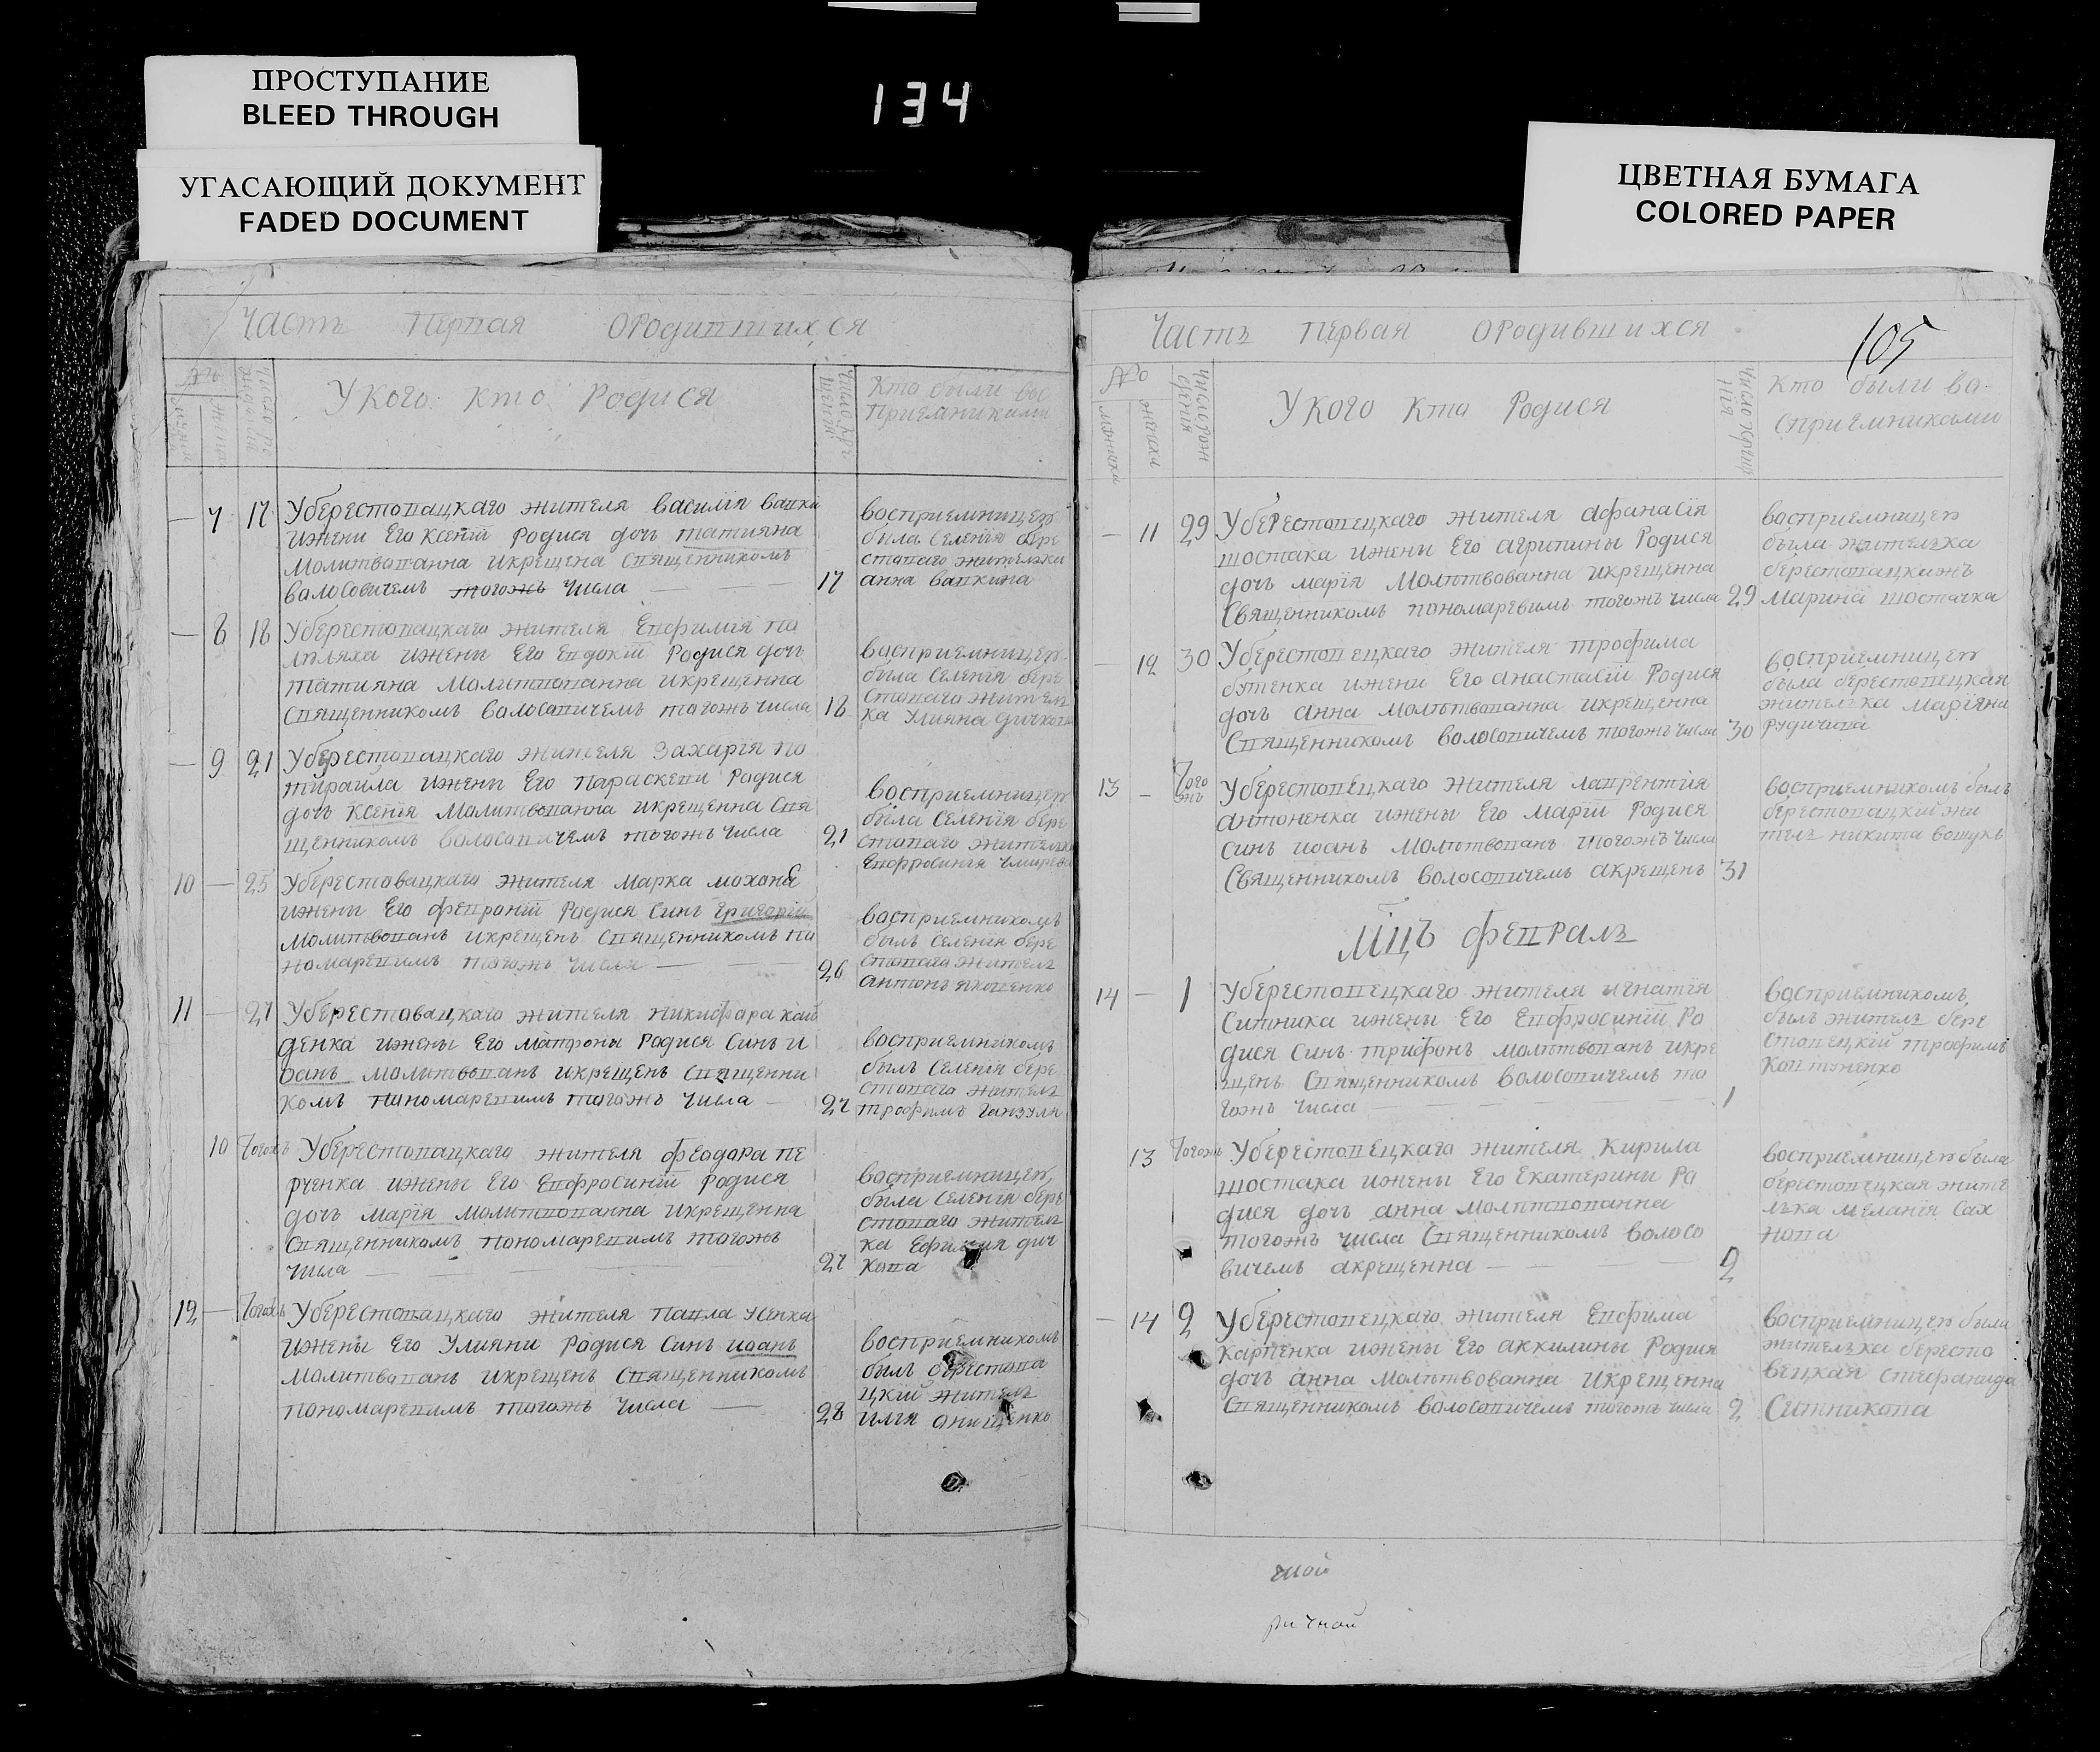 134
ПРОСТУПАНИЕ
BLEED THROUGH
УГАСАЮЩИЙ ДОКУМЕНТ
FADED DOCUMENT
ЦВЕТНАЯ БУМАГА
COLORED PAPER
Часть первая ородившихся
№
У кого кто Родися
Кто были вос
приемниками
7 17 Уберестовацкаго жителя василия
ижени Его Ксении Родися дочь татияна
Молитвованна икрещена священникомъ
волосовичемъ тогожъ числа 17
восприемницею
была селения бере
стоваго жителка
анна вапкина
8 18 Уберестовацкаго жителя Евфимия
ижени Его Евдокии Родися дочь
татияна молитвованна икрещенна
священникомъ волосовичемъ тогожъ числа 18
восприемницею
была селения бере
стоваго жител
ка Улияна
9 21 Уберестовацкаго жителя Захария по
тираила ижени Его параскеви Родися
дочь Ксения Молитвованна икрещенна свя
щенникомъ волосовичемъ тогожъ числа 21
восприемницею
была селения бере
стоваго жителка
Евфросиния
10 25 Уберестовацкаго жителя Марка
ижени Его февронии Родися синъ Григорий
молитвованъ икрещенъ священникомъ по
номаревимъ тогожъ числа 26
восприемникомъ
былъ селения бере
стоваго жителъ
антонъ
11 27 Уберестовацкаго жителя никифора кай
денка ижены Его матроны Родися Синъ и
оанъ молитвованъ икрещенъ священни
комъ пономаревимъ тогожъ числа 27
восприемникомъ
былъ селения бере
стоваго жителъ
трофимъ ганзуля
10 Тогожъ Уберестовацкаго жителя феодора пе
рченка ижены Его Евфросинии родися
дочь мария молитвованна икрещенна
священникомъ пономаревимъ тогожъ
числа 27
восприемницею
была селения бере
стоваго жител
ка Ефимия дич
кова
12 Тогожъ Уберестовацкаго жителя павла усенка
ижены Его Улияни родися синъ иоанъ
молитвованъ икрещенъ священникомъ
пономаревимъ тогожъ числа 28
восприемникомъ
былъ берестова
цкий жителъ
илия онищенко
Часть первая ородившихся
105
№
У кого кто Родися
Кто были во
сприемниками
11 29 Уберестовецкаго жителя афанасия
шостака ижены Его агрипины Родися
дочь мария молитвованна икрещенна
Священникомъ пономаревимъ тогожъ числа 29
восприемницею
была жителка
берестовацкажъ
Марина шостачка
12 30 Уберестовецкаго жителя трофима
ижени Его анастасии Родися
дочь анна молитвованна икрещенна
Священникомъ волосовичемъ тогожъ числа 30
восприемницею
была берестовецкая
жителька Марияна
рудичива
13 Тогожъ Уберестовецкаго жителя лаврентия
антоненка ижены Его Марии Родися
синъ иоанъ молитвованъ тогожъ числа
Священникомъ волосовичемъ акрещенъ 31
восприемникомъ былъ
берестовацкий жи
тель никита
мцъ февраль
14 1 Уберестовецкаго жителя игнатия
Ситника ижены Его Евфросинии Ро
дися синъ трифонъ молитвованъ икре
щенъ священникомъ волосовичемъ то
гожъ числа 1
восприемникомъ
былъ жителъ бере
стовецкий трофимъ
Ковтуненко
13 Тогожъ Уберестовецкаго жителя Кирила
шостака ижены Его Екатерини Ро
дися дочь анна молитвованна
тогожъ числа священникомъ волосо
вичемъ акрещенна 2
восприемницею была
берестовецкая жите
лька мелания Сах
нова
14 2 Уберестовецкаго жителя Евфима
карпенка ижены Его аккилины Родися
дочь анна молитвованна икрещенна
священникомъ волосовичемъ тогожъ числа 2
восприемницею была
жителка бересто
вецкая стефанида
Ситникова